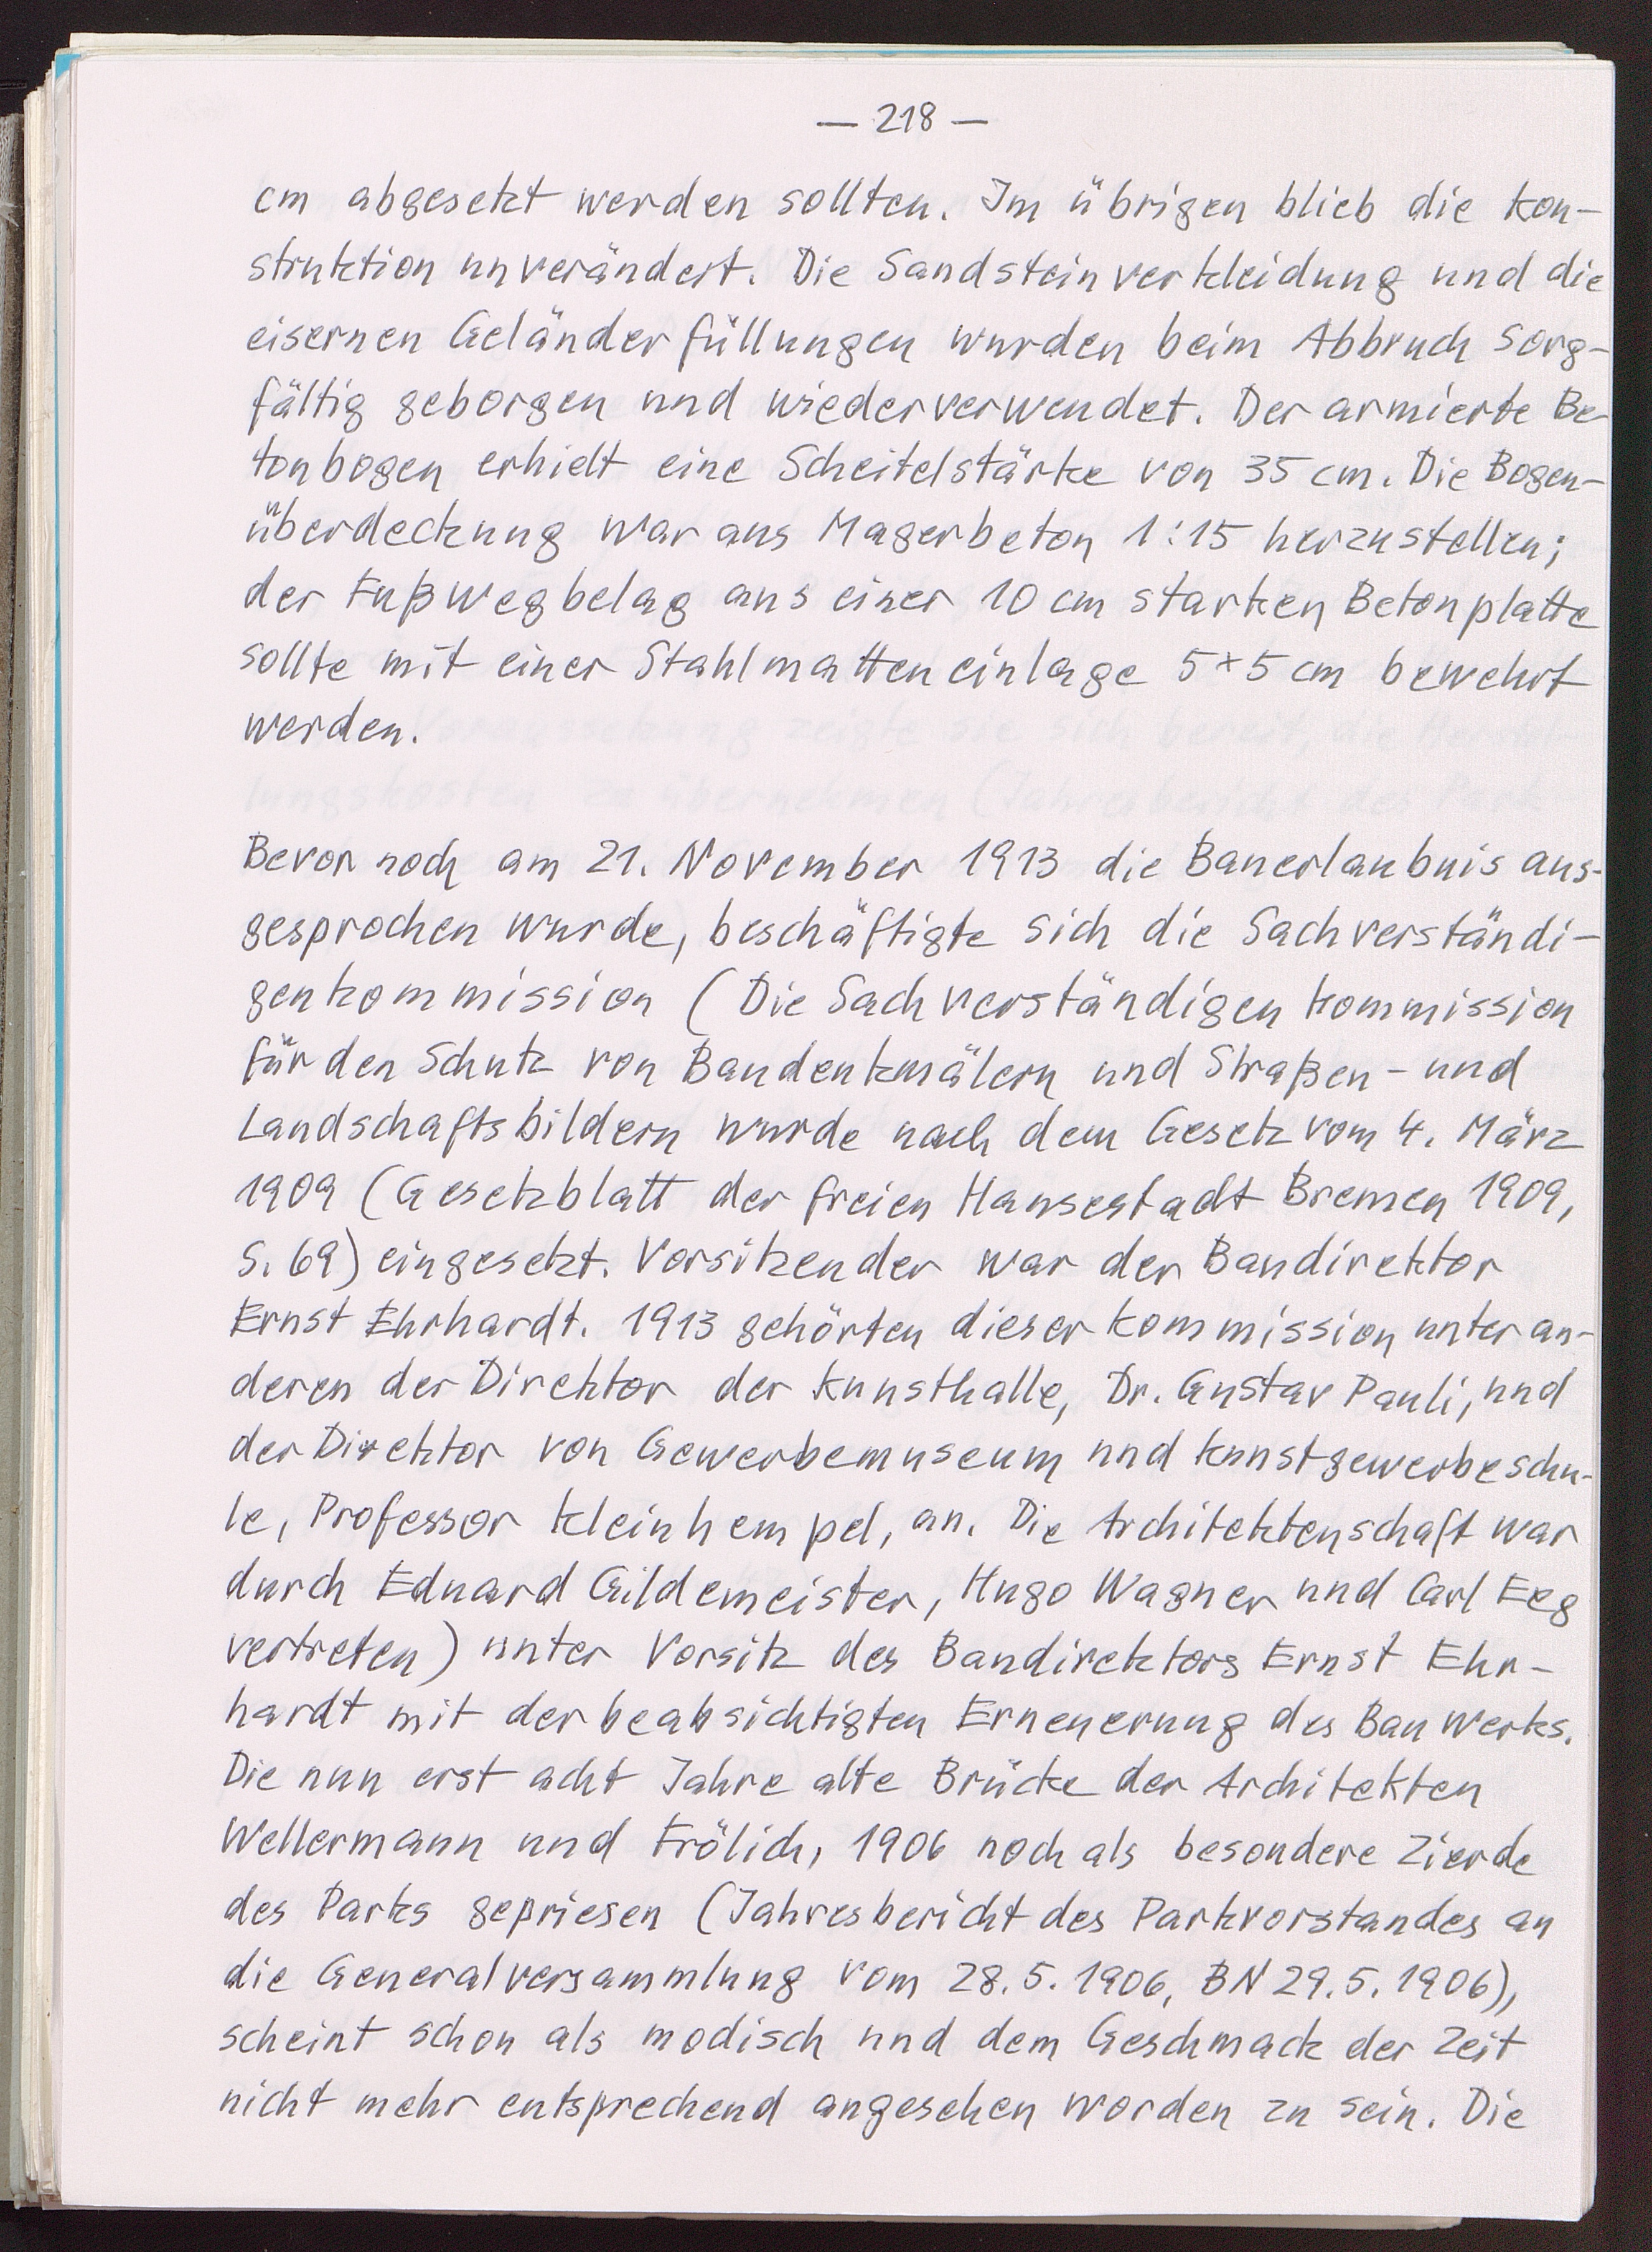 — 218 —
cm abgesetzt werden sollten. Im übrigen blieb die Kon-
struktion unverändert. Die Sandsteinverkleidung und die
eisernen Geländerfüllungen wurden beim Abbruch sorg-
fältig geborgen und wiederverwendet. Der armierte Be-
tonbogen erhielt eine Scheitelstärke von 35 cm. Die Bogen-
überdeckung war aus Magerbeton 1:15 herzustellen;
der Fußwegbelag aus einer 10 cm starken Betonplatte
sollte mit einer Stahlmatteneinlage 5×5 cm bewehrt
werden.
Bevor noch am 21. November 1913 die Bauerlaubnis aus-
gesprochen wurde, beschäftigte sich die Sachverständi-
genkommission (Die Sachverständigenkommission
für den Schutz von Baudenkmälern und Straßen- und
Landschaftsbildern wurde nach dem Gesetz vom 4. März
1909 (Gesetzblatt der freien Hansestadt Bremen 1909,
S. 69) eingesetzt. Vorsitzender war der Baudirektor
Ernst Ehrhardt. 1913 gehörten dieser Kommission unter an-
deren der Direktor der Kunsthalle, Dr. Gustav Pauli, und
der Direktor von Gewerbemuseum und Kunstgewerbeschu-
le, Professor Kleinhempel, an. Die Architektenschaft war
durch Eduard Gildemeister, Hugo Wagner und Carl Eeg
vertreten) unter Vorsitz des Baudirektors Ernst Ehr-
hardt mit der beabsichtigten Erneuerung des Bauwerks.
Die nun erst acht Jahre alte Brücke der Architekten
Wellermann und Frölich, 1906 noch als besondere Zierde
des Parks gepriesen (Jahresbericht des Parkvorstandes an
die Generalversammlung vom 28.5.1906, BN 29.5.1906),
scheint schon als modisch und dem Geschmack der Zeit
nicht mehr entsprechend angesehen worden zu sein. Die